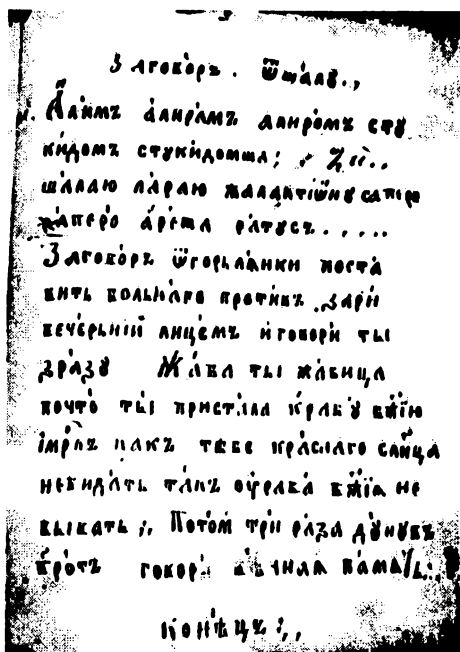 Заговоръ. ѿшалу.,
Ааимъ ааирамъ ааиромъ сту
кидомъ стукидомша;
шадаю параю
ꙗаперо ареша ратусъ.....
Заговоръ ѿгорьлѧнки поста
вить больнаго противъ зари
вечерьнїй лицемъ и говори ты
зразу Жаба ты жабица
почто ты пристала к рабу бж҃їю
імр҃къ какъ тебе краснаго сл҃нца
невидать такъ оу раба бж҃їѧ не
бывать;, Потом три раза дунувъ
вротъ говори вечнаѧ память:.
Конѣцъ:,,